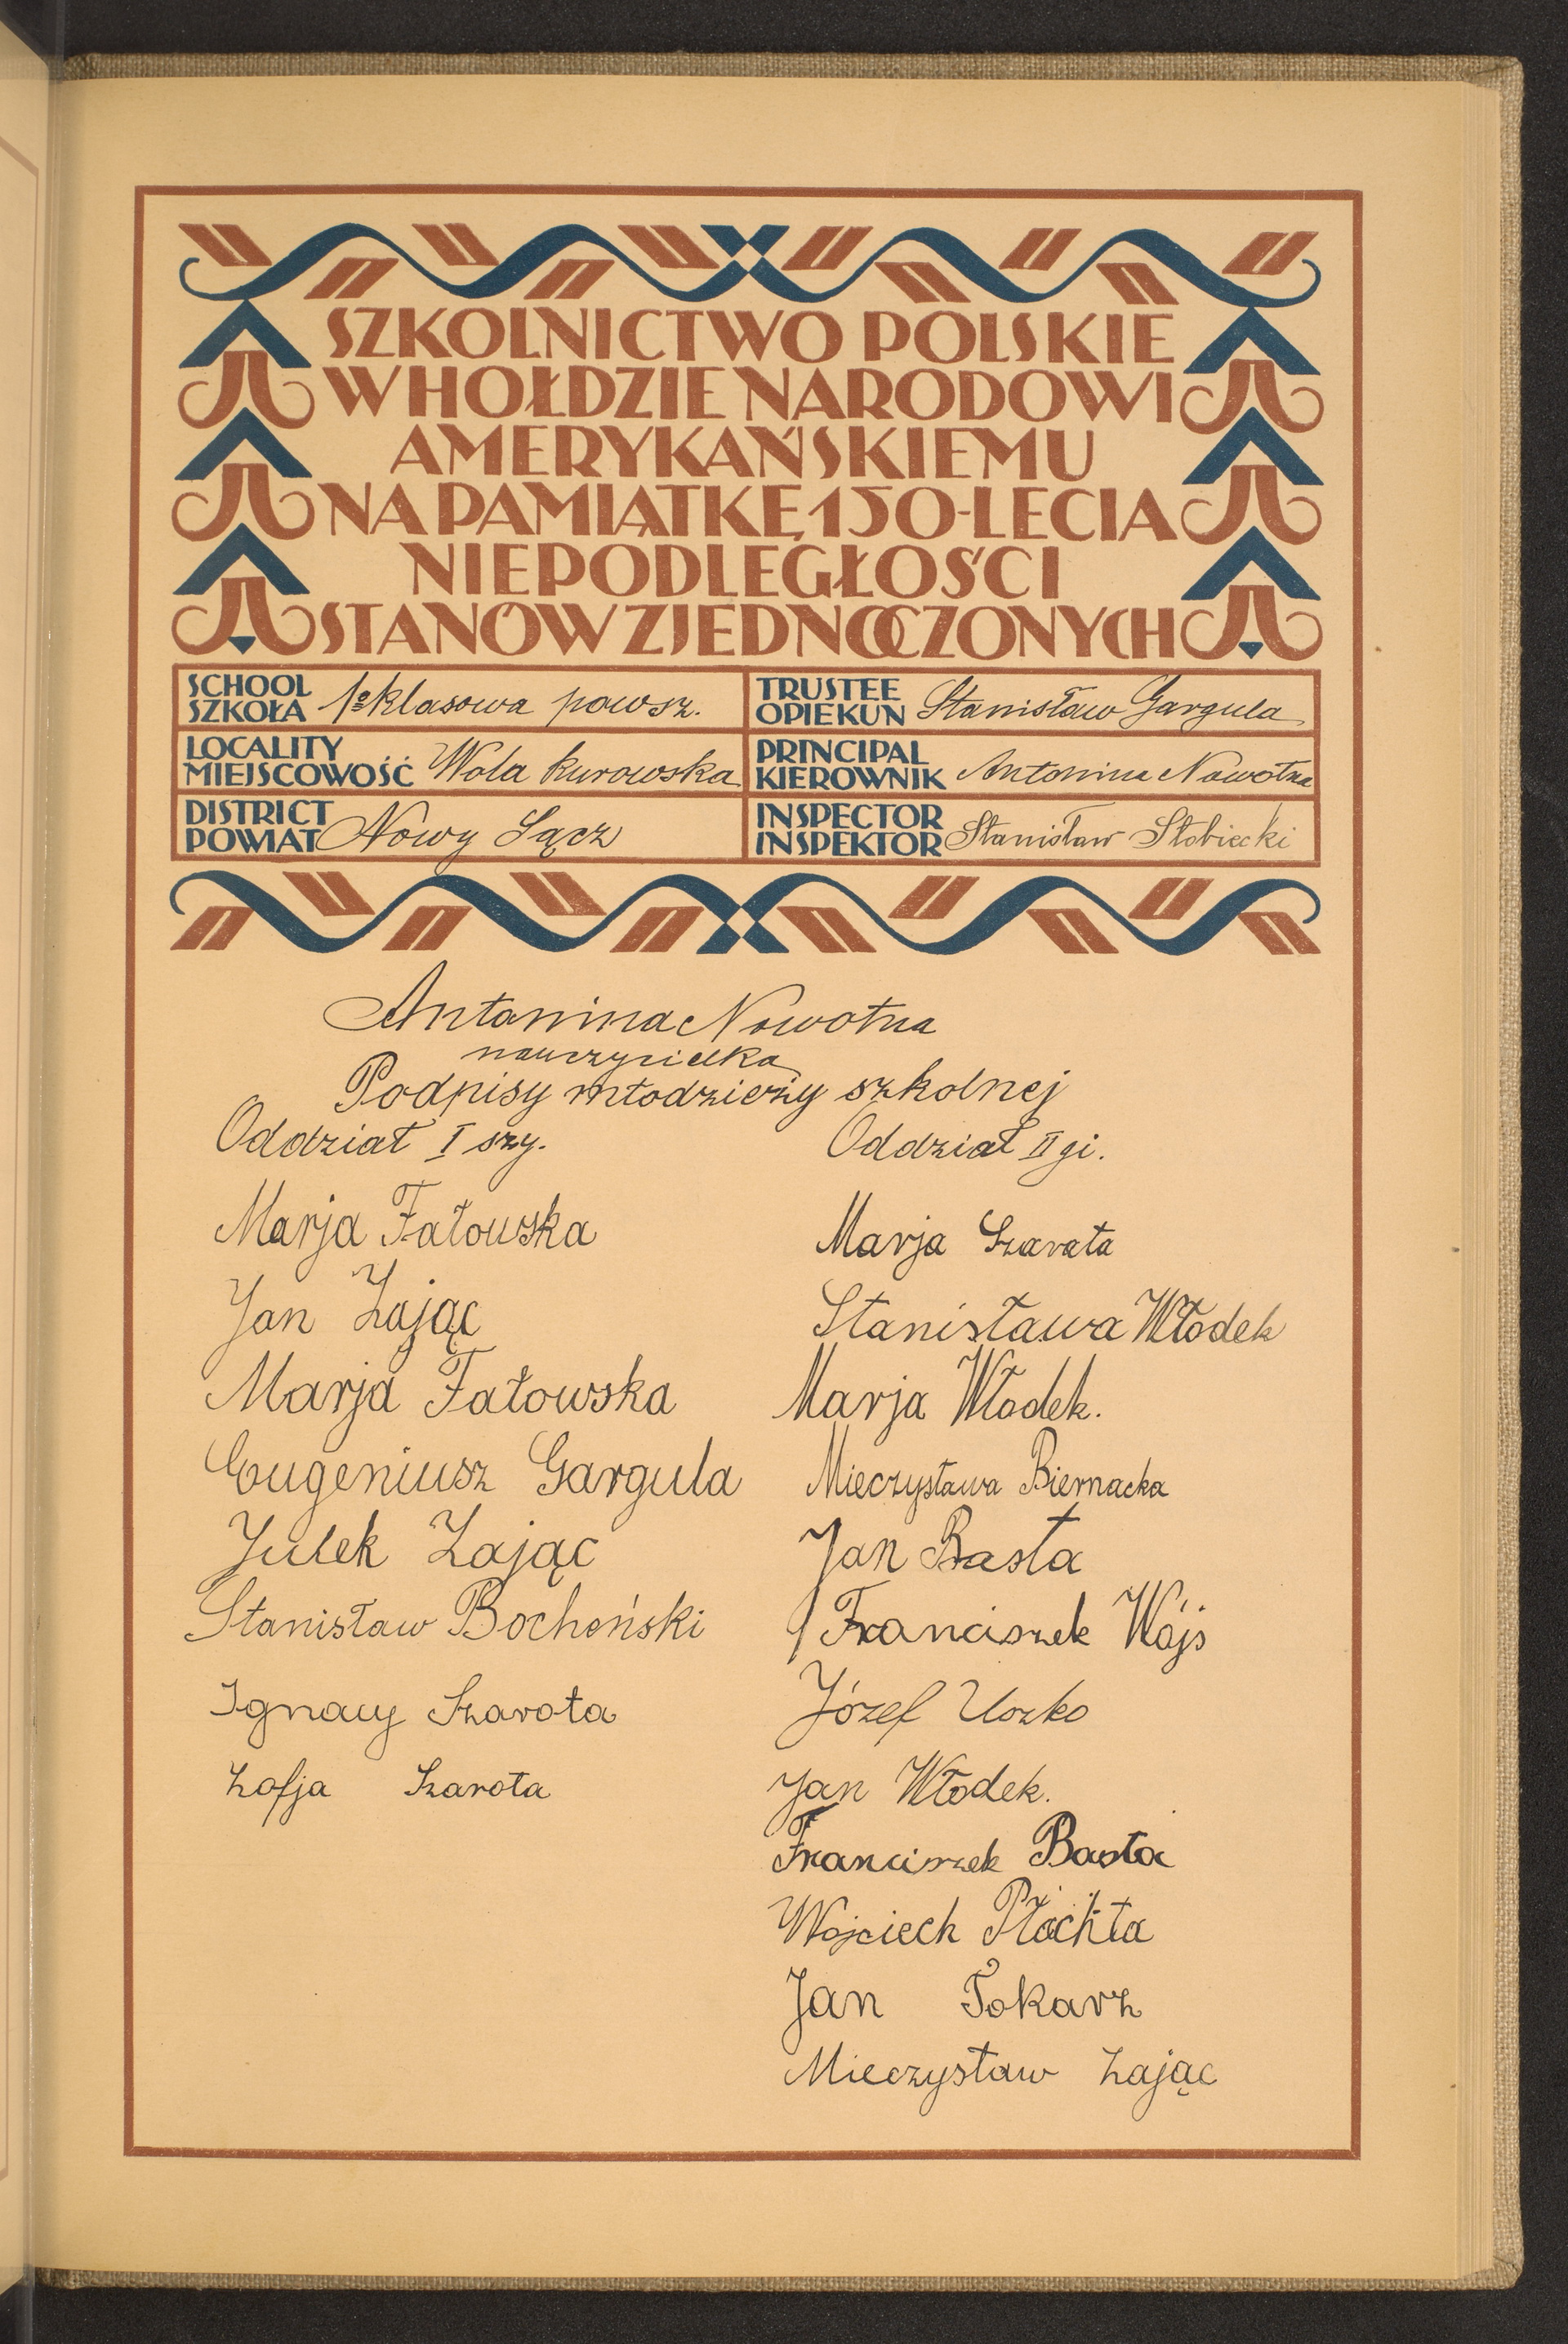 SZKOLNICTWO POLSKIE
W HOŁDZIE NARODOWI
AMERYKAŃSKIEMU
NA PAMIĄTKĘ 150-LECIA
NIEPODLEGŁOŚCI
STANÓW ZJEDNOCZONYCH
SCHOOL
SZKOŁA 1-klasowa powsz.
TRUSTEE
OPIEKUN Stanisław Gargula
LOCALITY
MIEJSCOWOŚĆ Wola kurowska
PRINCIPAL
KIEROWNIK Antonina Nowotna
DISTRICT
POWIAT Nowy Sącz
INSPECTOR
INSPEKTOR Stanisław Słobiecki
Antonina Nowotna
nauczycielka
Podpisy młodzieży szkolnej
Oddział I szy.
Marja Fałowska
Jan Zając
Marja Fałowska
Eugeniusz Gargula
Julek Zając
Stanisław Bocheński
Ignacy Szarota
Zofja Szarota
Oddział II gi.
Marja Szarata
Stanisława Włodek
Marja Włodek.
Mieczysława Biernacka
Jan Basta
Franciszek Wójs
Józef Uszko
Jan Włodek.
Franciszek Basta
Wojciech Płachta
Jan Tokarz
Mieczysław Zając